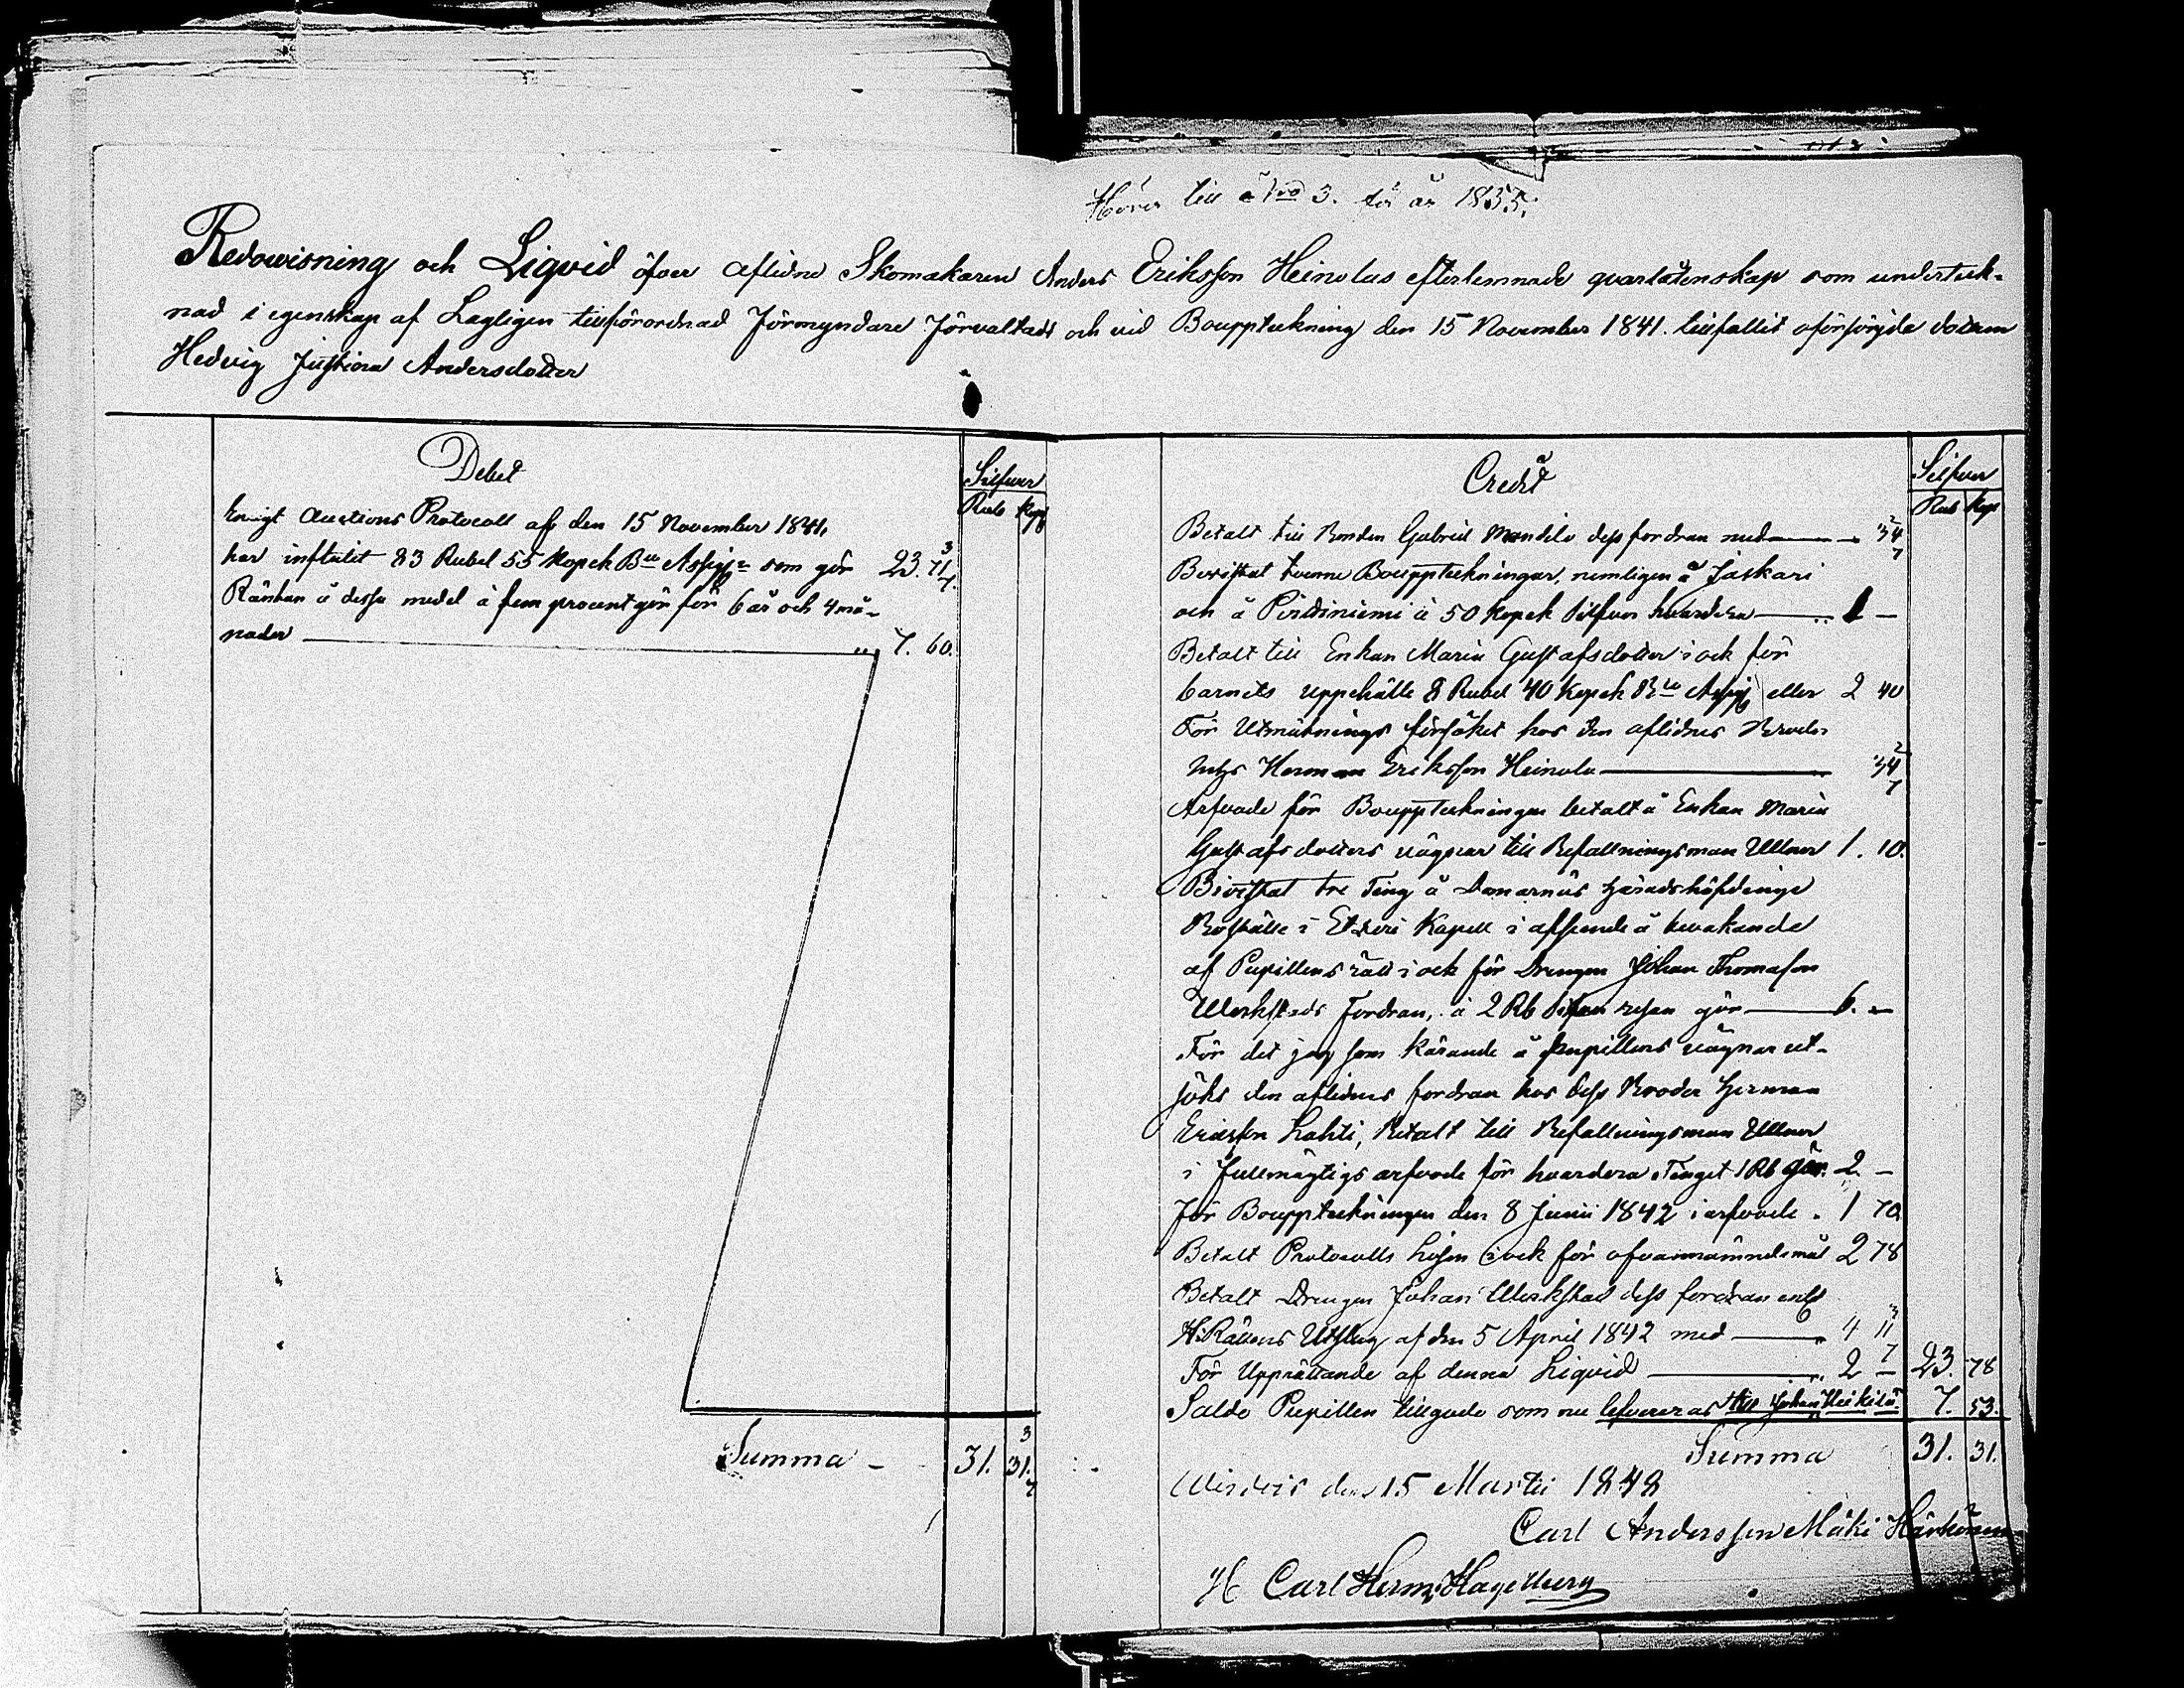 Hörer till N:o 3. för år 1855.
Redovisning och Liqvid öfver aflidne Skomakaren Anders Eriksson Heinolas efterlemnade qvarlåtenskap som underteck-
nad i egenskap af Lagligen tillförordnad Förmyndare förvaltadt och vid Bouppteckning den 15 November 1841. tillfallit oförsörjda dottren
Hedvig Justina Andersdotter
Debet
Silfver
Rub Kop
Enligt Auctions Protocoll af den 15 November 1841,
har influtit 83 Rubel 55 Kopek B:co Assign: som gör 23. 71 3/7.
Räntan å dessa medel à fem procent gör för 6 år och 4 må-
nader 7. 60.
Summa 31. 31. 3/7
Credit
Silfver
Rub Kop
Betalt till Bonden Gabriel Mandila dess fordran med 34 2/7
Bevistat tvenne Bouppteckningar, nemligen å Jaskari
och å Pirttiniemi à 50 Kopek Silfver hvardera 1 —
Betalt till Enkan Maria Gustafsdotter i ock för
barnets uppehälle 8 Rubel 40 Kopek B:co Assig eller 2 40
För Utmätnings försöket hos den aflidnes Broder
Herman Eriksson Heinola 34 2/7
Arfvode för Bouppteckningen betalt å Enkan Maria
Gustafsdotters vägnar till Befallningsman Ullner 1. 10.
Bivistat tre Ting å Domarnäs Häradshöfdinge
Boställe i Etseri Kapell i afseende å bevakande
af Pupillens rätt i ock för Drengen Johan Thomasson
Werkstads Fordran, à 2 Rb Silfver resan gör 6. —
För det jag som Kärande å pupillens vägnar ut-
sökt den aflidnes fordran hos dess Broder Herman
Ericsson Lahti, Betalt till Befallningsman Ullner
i fullmägtigs arfvode för hvardera Tinget 1 Rb gör. 2 —
För Bouppteckningen den 8 Junii 1842 i arfvode. 1 70
Betalt Protocolls Lösen i ock för ofvannämnde mål 2 78
Betalt Drengen Johan Werkstad dess fordran enl
H:Rättens Utslag af den 5 April 1842 med 4 11 3/7
För Upprättande af denna Liqvid 2 — 23. 78
Saldo Pupillen tillgodo som nu lefvereras till Johan Heikilä 7. 53.
Summa 31. 31.
Wirdois den 15 Martii 1848
Carl Andersson Mäki Härkönen
Carl Herm: Hagelberg